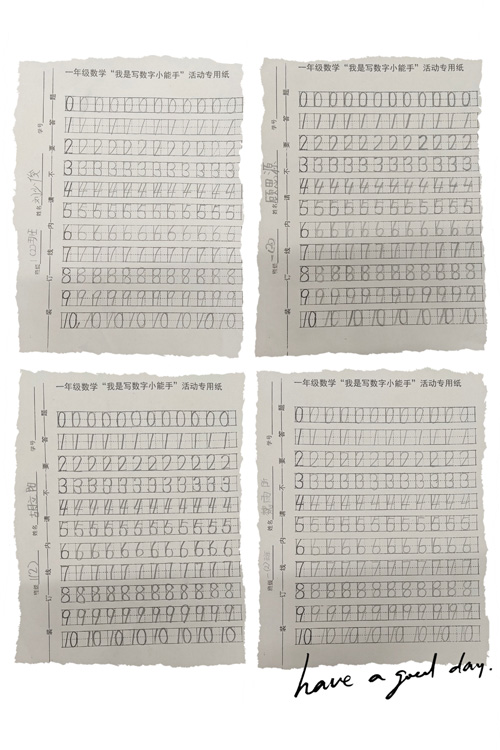 一年级数学“我是写数字小能手”活动专用纸
班级 1(2)班 姓名 学号
装订线内请不要答题
0 0 0 0 0 0 0 0 0 0 0 0
1 1 1 1 1 1 1 1 1 1 1 1
2 2 2 2 2 2 2 2 2 2 2 2
3 3 3 3 3 3 3 3 3 3 3 3
4 4 4 4 4 4 4 4 4 4 4 4
5 5 5 5 5 5 5 5 5 5 5 5
6 6 6 6 6 6 6 6 6 6 6 6
7 7 7 7 7 7 7 7 7 7 7 7
8 8 8 8 8 8 8 8 8 8 8 8
9 9 9 9 9 9 9 9 9 9 9 9
10 10 10 10 10 10 10 10
一年级数学“我是写数字小能手”活动专用纸
班级 一(2) 姓名 学号
装订线内请不要答题
0 0 0 0 0 0 0 0 0 0 0 0
1 1 1 1 1 1 1 1 1 1 1 1
2 2 2 2 2 2 2 2 2 2 2 2
3 3 3 3 3 3 3 3 3 3 3 3
4 4 4 4 4 4 4 4 4 4 4 4
5 5 5 5 5 5 5 5 5 5 5 5
6 6 6 6 6 6 6 6 6 6 6 6
7 7 7 7 7 7 7 7 7 7 7 7
8 8 8 8 8 8 8 8 8 8 8 8
9 9 9 9 9 9 9 9 9 9 9 9
10 10 10 10 10 10 10 10
一年级数学“我是写数字小能手”活动专用纸
班级 1(2) 姓名 学号
装订线内请不要答题
0 0 0 0 0 0 0 0 0 0 0 0
1 1 1 1 1 1 1 1 1 1 1 1
2 2 2 2 2 2 2 2 2 2 2 2
3 3 3 3 3 3 3 3 3 3 3 3
4 4 4 4 4 4 4 4 4 4 4 4
5 5 5 5 5 5 5 5 5 5 5 5
6 6 6 6 6 6 6 6 6 6 6 6
7 7 7 7 7 7 7 7 7 7 7 7
8 8 8 8 8 8 8 8 8 8 8 8
9 9 9 9 9 9 9 9 9 9 9 9
10 10 10 10 10 10 10 10
一年级数学“我是写数字小能手”活动专用纸
班级 姓名 学号
装订线内请不要答题
0 0 0 0 0 0 0 0 0 0 0 0
1 1 1 1 1 1 1 1 1 1 1 1
2 2 2 2 2 2 2 2 2 2 2 2
3 3 3 3 3 3 3 3 3 3 3 3
4 4 4 4 4 4 4 4 4 4 4 4
5 5 5 5 5 5 5 5 5 5 5 5
6 6 6 6 6 6 6 6 6 6 6 6
7 7 7 7 7 7 7 7 7 7 7 7
8 8 8 8 8 8 8 8 8 8 8 8
9 9 9 9 9 9 9 9 9 9 9 9
10 10 10 10 10 10 10 10
have a good day.